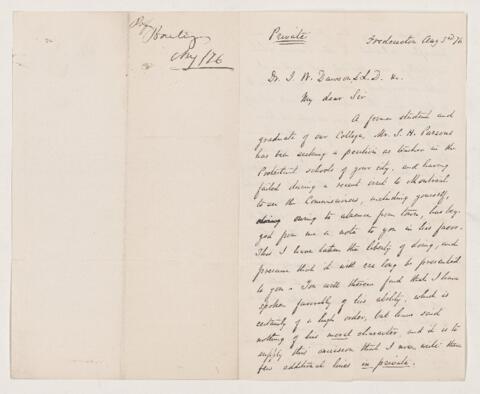 Private
Fredericton Aug 3rd /76
Dr. J. W. Dawson L.L.D. &c.
My dear Sir
A former student and
graduate of our College, Mr. J. H. Parsons
has been seeking a position as teacher in the
Protestant schools of your city, and having
failed during a recent visit to Montreal
to see the Commissioners, including yourself,
owing to absence from town, has beg-
ged from me a note to you in his favor.
This I have taken the liberty of doing, and
presume that it will ere long be presented
to you. You will therein find that I have
spoken favorably of his ability, which is
certainly of a high order, but have said
nothing of his moral character, and it is to
supply this omission that I now write these
few additional lines in private.
Aug /76